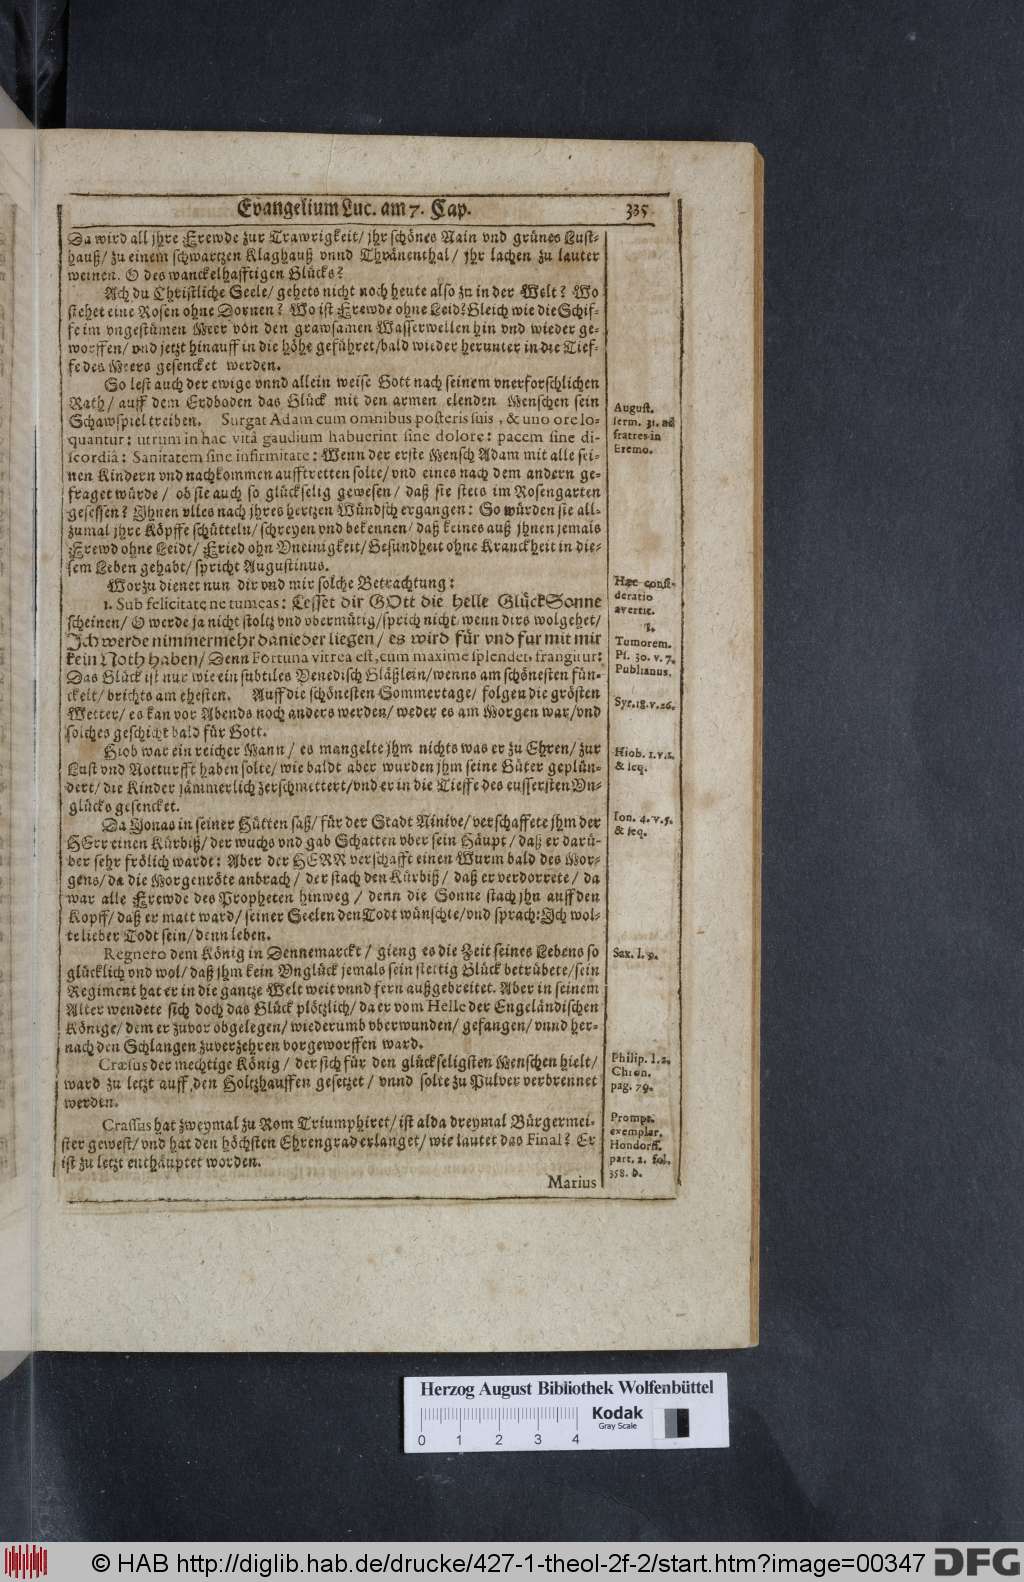 Evangelium Luc. am 7. Cap. 335
Da wird all jhre Frewde zur Trawrigkeit/ jhr schönes Nain vnd grünes Lust-
hauß/ zu einem schwartzen Klaghauß vnnd Thränenthal/ jhr lachen zu lauter
weinen. O des wanckelhafftigen Glücks?
Ach du Christliche Seele/ gehets nicht noch heute also zu in der Welt? Wo
stehet eine Rosen ohne Dornen? Wo ist Frewde ohne Leid? Gleich wie die Schif-
fe im vngestümen Meer von den grawsamen Wasserwellen hin vnd wieder ge-
worffen/ vnd jetzt hinauff in die höhe geführet/ bald wieder herunter in die Tief-
fe des Meers gesencket werden.
So lest auch der ewige vnnd allein weise Gott nach seinem vnerforschlichen
Rath/ auff dem Erdboden das Glück mit den armen elenden Menschen sein
Schawspiel treiben. Surgat Adam cum omnibus posteris suis, & uno ore lo-
quantur: utrum in hac vitâ gaudium habuerint sine dolore: pacem sine di-
scordiâ: Sanitatem sine infirmitate: Wenn der erste Mensch Adam mit alle sei-
nen Kindern vnd nachkommen aufftretten solte/ vnd eines nach dem andern ge-
fraget würde/ ob sie auch so glückselig gewesen/ daß sie stets im Rosengarten
gesessen? Ihnen alles nach jhres hertzen Wündsch ergangen: So würden sie all-
zumal jhre Köpffe schütteln/ schreyen vnd bekennen/ daß keines auß jhnen jemals
Frewd ohne Leidt/ Fried ohn Vneinigkeit/ Gesundheit ohne Kranckheit in die-
sem Leben gehabt/ spricht Augustinus.
August.
serm. 31. ad
fratres in
Eremo.
Worzu dienet nun dir vnd mir solche Betrachtung:
1. Sub felicitate ne tumeas: Lesset dir GOtt die helle GlückSonne
scheinen/ O werde ja nicht stoltz vnd vbermütig/ sprich nicht/ wenn dirs wolgehet/
Ich werde nimmermehr danieder liegen/ es wird für vnd fur mit mir
kein Noth haben/ Denn Fortuna vitrea est, cum maxime splendet, frangitur:
Das Glück ist nur wie ein subtiles Venedisch Gläßlein/ wenns am schönesten fün-
ckelt/ brichts am ehesten. Auff die schönesten Sommertage/ folgen die grösten
Wetter/ es kan vor Abends noch anders werden/ weder es am Morgen war/ vnd
solches geschicht bald für Gott.
Hæc consi-
deratio
avertit.
1.
Tumorem.
Ps. 30. v. 7.
Publianus.
Syr. 18. v. 26.
Hiob war ein reicher Mann/ es mangelte jhm nichts was er zu Ehren/ zur
Lust vnd Notturfft haben solte/ wie baldt aber wurden jhm seine Güter geplün-
dert/ die Kinder jämmerlich zerschmettert/ vnd er in die Tieffe des eussersten Vn-
glücks gesencket.
Hiob. 1. v. 1.
& seq.
Da Jonas in seiner Hütten saß/ für der Stadt Ninive/ verschaffete jhm der
HErr einen Kürbiß/ der wuchs vnd gab Schatten vber sein Häupt/ daß er darü-
ber sehr frölich wardt: Aber der HERR verschafft einen Wurm bald des Mor-
gens/ da die Morgenröte anbrach/ der stach den Kürbiß/ daß er verdorrete/ da
war alle Frewde des Propheten hinweg/ denn die Sonne stach jhn auff den
Kopff/ daß er matt ward/ seiner Seelen den Todt wünschte/ vnd sprach: Ich wol-
te lieber Todt sein/ denn leben.
Ion. 4. v. 5.
& seq.
Regnero dem König in Dennemarckt/ gieng es die Zeit seines Lebens so
glücklich vnd wol/ daß jhm kein Vnglück jemals sein stettig Glück betrübete/ sein
Regiment hat er in die gantze Welt weit vnnd fern außgebreitet. Aber in seinem
Alter wendete sich doch das Glück plötzlich/ da er vom Helle der Engeländischen
Könige/ dem er zuvor obgelegen/ wiederumb vberwunden/ gefangen/ vnnd her-
nach den Schlangen zuverzehren vorgeworffen ward.
Sax. l. 9.
Crœsus der mechtige König/ der sich für den glückseligsten Menschen hielt/
ward zu letzt auff den Holtzhauffen gesetzet/ vnnd solte zu Pulver verbrennet
werden.
Philip. l. 2.
Chron.
pag. 79.
Crassus hat zweymal zu Rom Triumphiret/ ist alda dreymal Bürgermei-
ster gewest/ vnd hat den höchsten Ehrengrad erlanget/ wie lautet das Final? Er
ist zu letzt enthäuptet worden.
Prompt.
exemplar.
Hondorff.
part. 2. fol.
358. b.
Marius
Herzog August Bibliothek Wolfenbüttel
Kodak
Gray Scale
0 1 2 3 4
© HAB http://diglib.hab.de/drucke/427-1-theol-2f-2/start.htm?image=00347 DFG